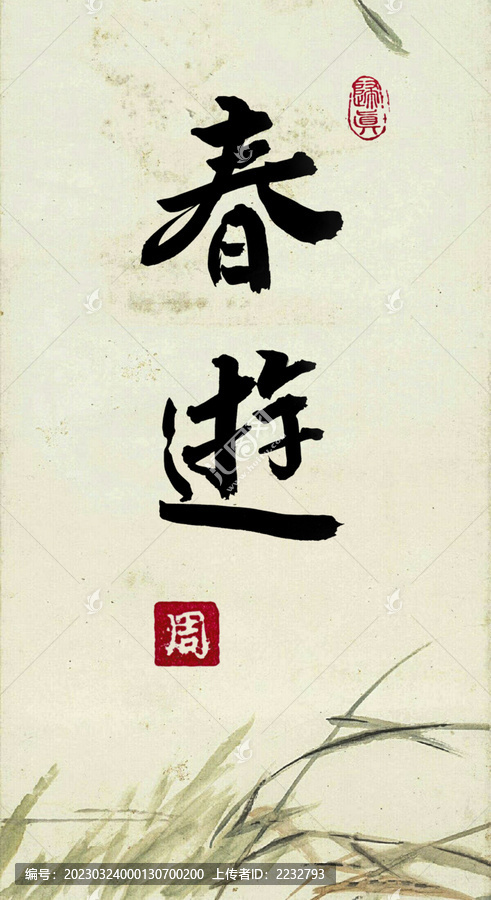 歸真
春
遊
周
编号：20230324000130700200 上传者ID：2232793